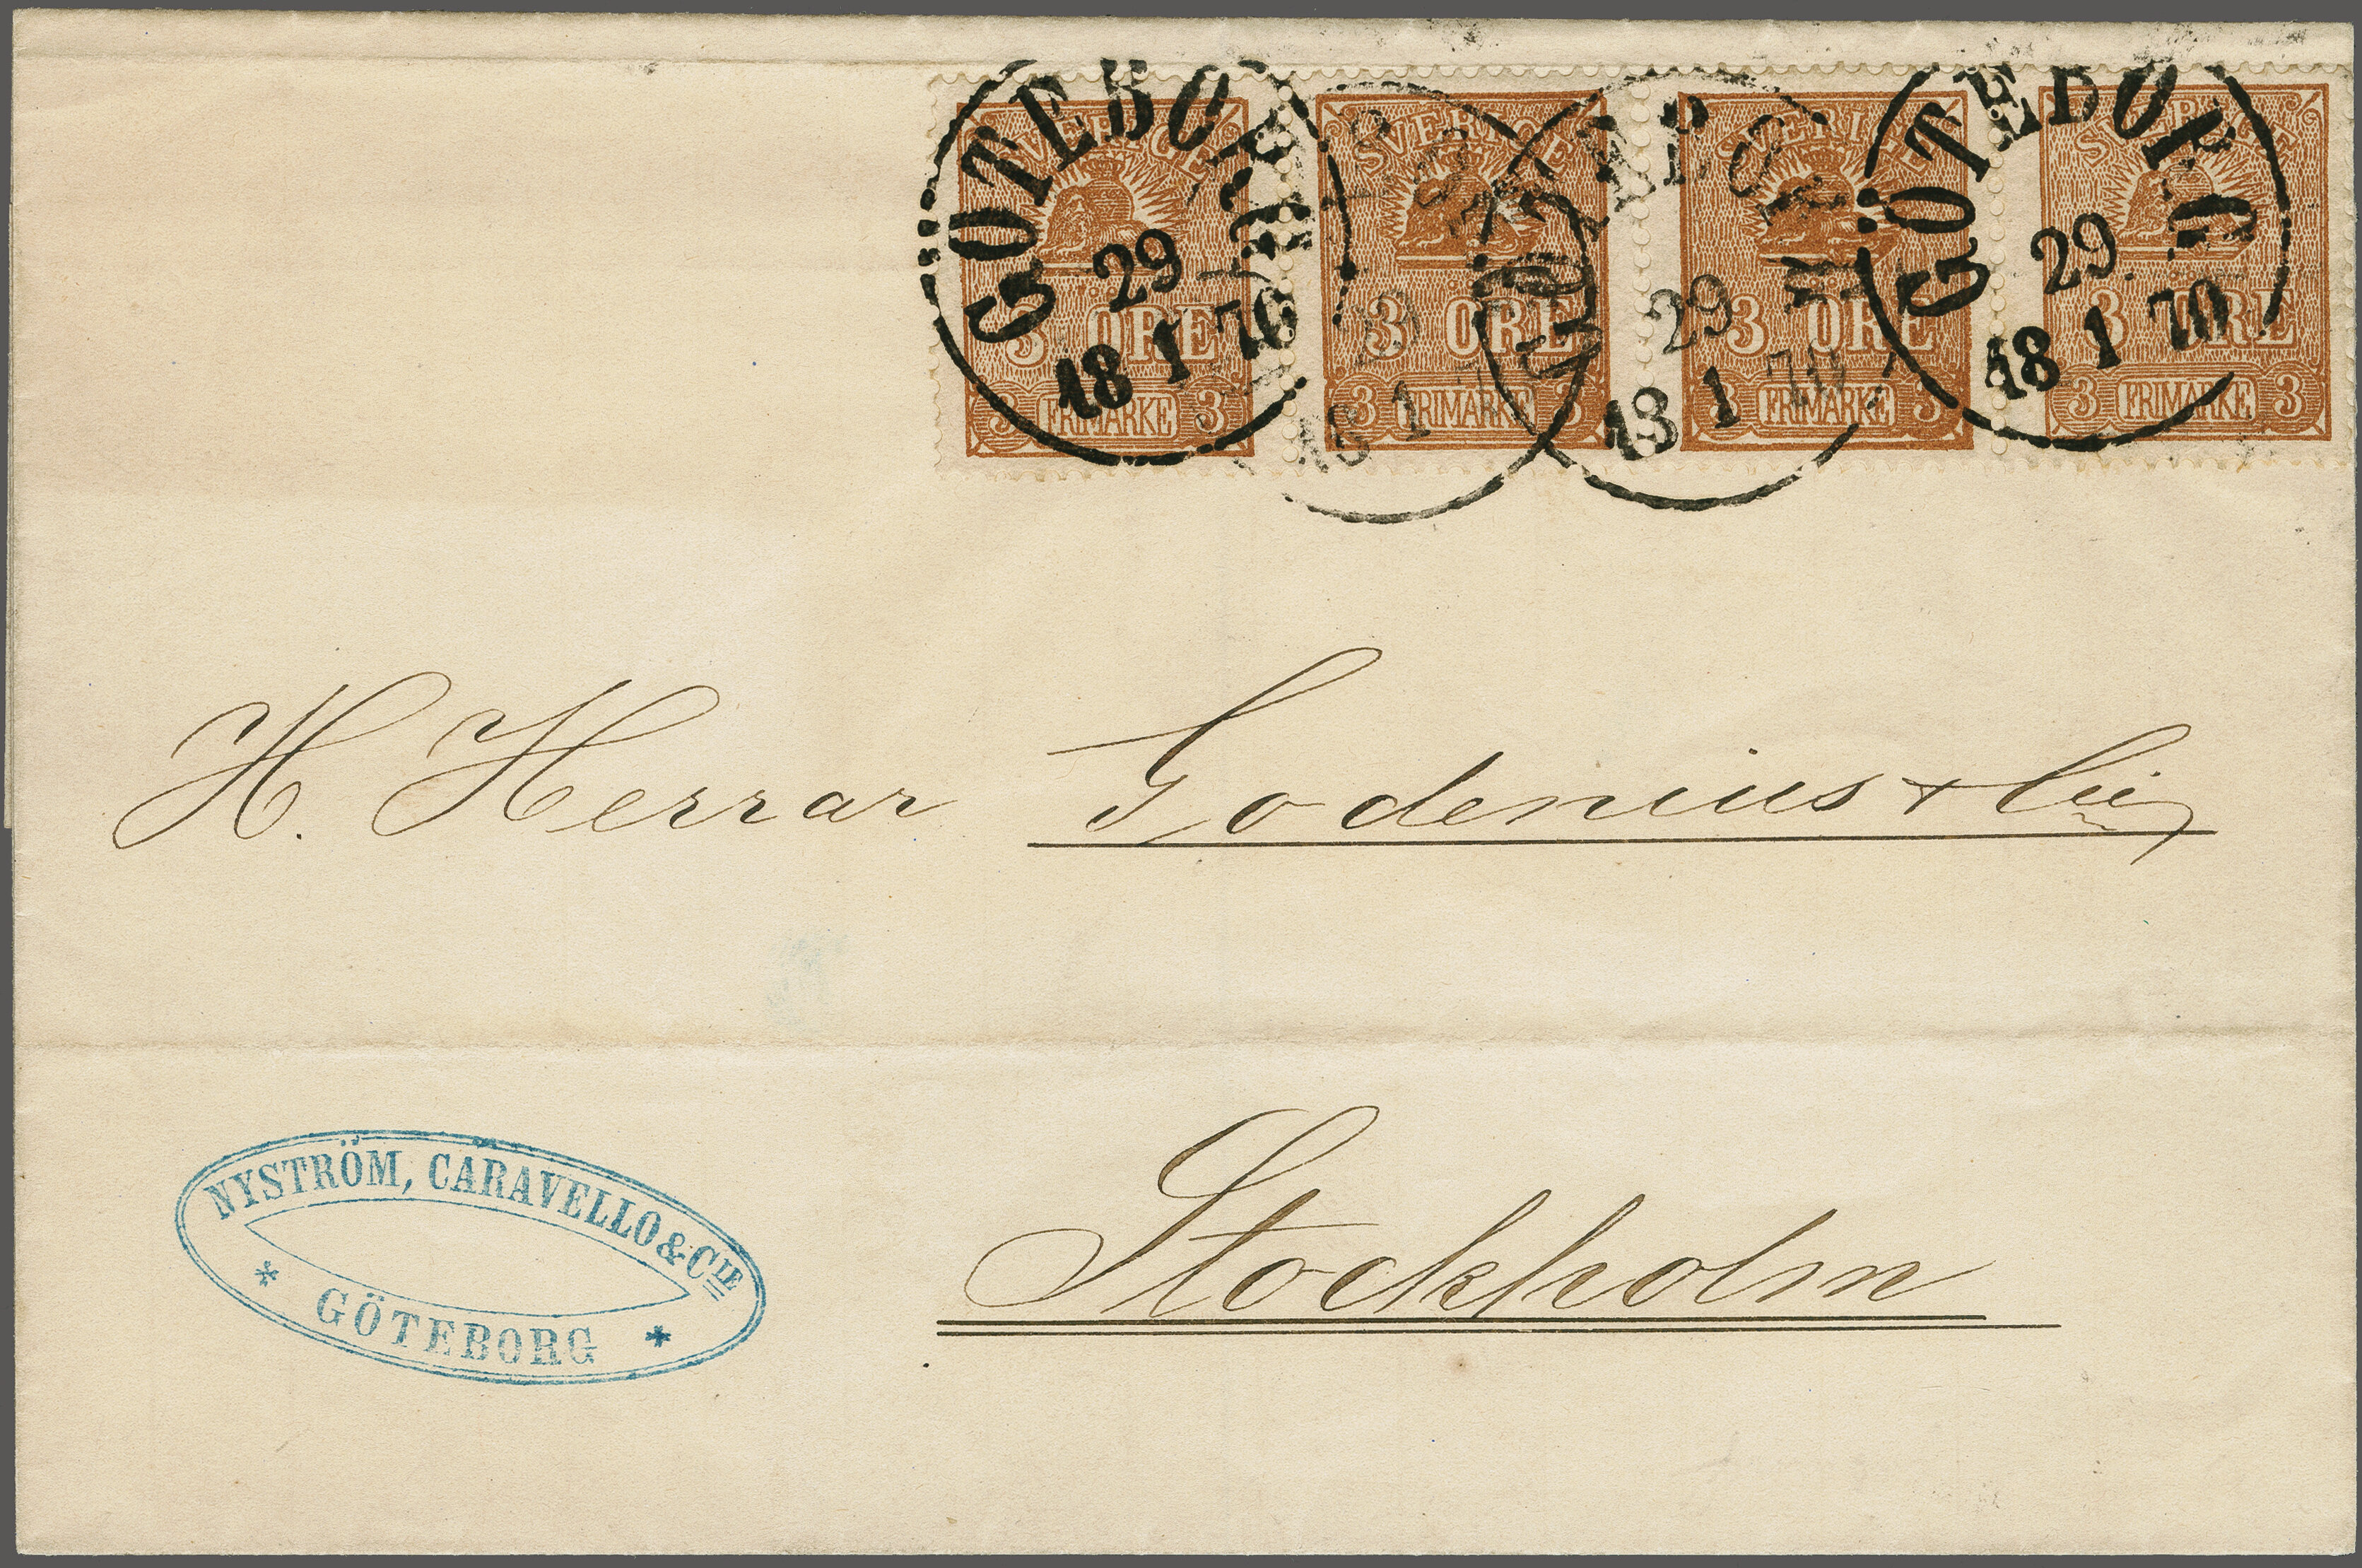 GÖTEBORG
29
18 1 70
GÖTEBORG
29
18 1 7
GÖTEBO
29
18 1 70
GÖTEBORG
29
18 1 70
SVERIGE
3 ÖRE
3 FRIMÄRKE 3
SVERIGE
3 ÖRE
3 FRIMÄRKE 3
SVERIGE
3 ÖRE
3 FRIMÄRKE 3
SVERIGE
3 ÖRE
3 FRIMÄRKE 3
H. Herrar Godenius + Cie
NYSTRÖM, CARAVELLO & CIE
* GÖTEBORG *
Stockholm